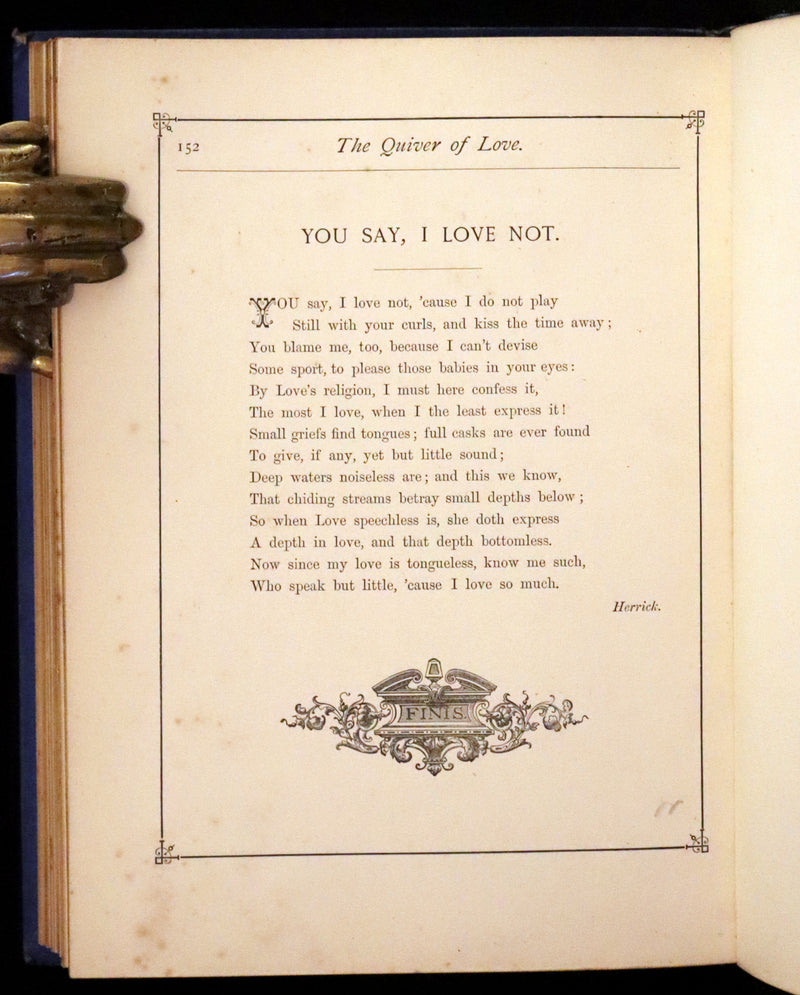 152
The Quiver of Love.
YOU SAY, I LOVE NOT.
YOU say, I love not, 'cause I do not play
Still with your curls, and kiss the time away;
You blame me, too, because I can't devise
Some sport, to please those babies in your eyes:
By Love's religion, I must here confess it,
The most I love, when I the least express it!
Small griefs find tongues; full casks are ever found
To give, if any, yet but little sound;
Deep waters noiseless are; and this we know,
That chiding streams betray small depths below;
So when Love speechless is, she doth express
A depth in love, and that depth bottomless.
Now since my love is tongueless, know me such,
Who speak but little, 'cause I love so much.
Herrick.
FINIS.